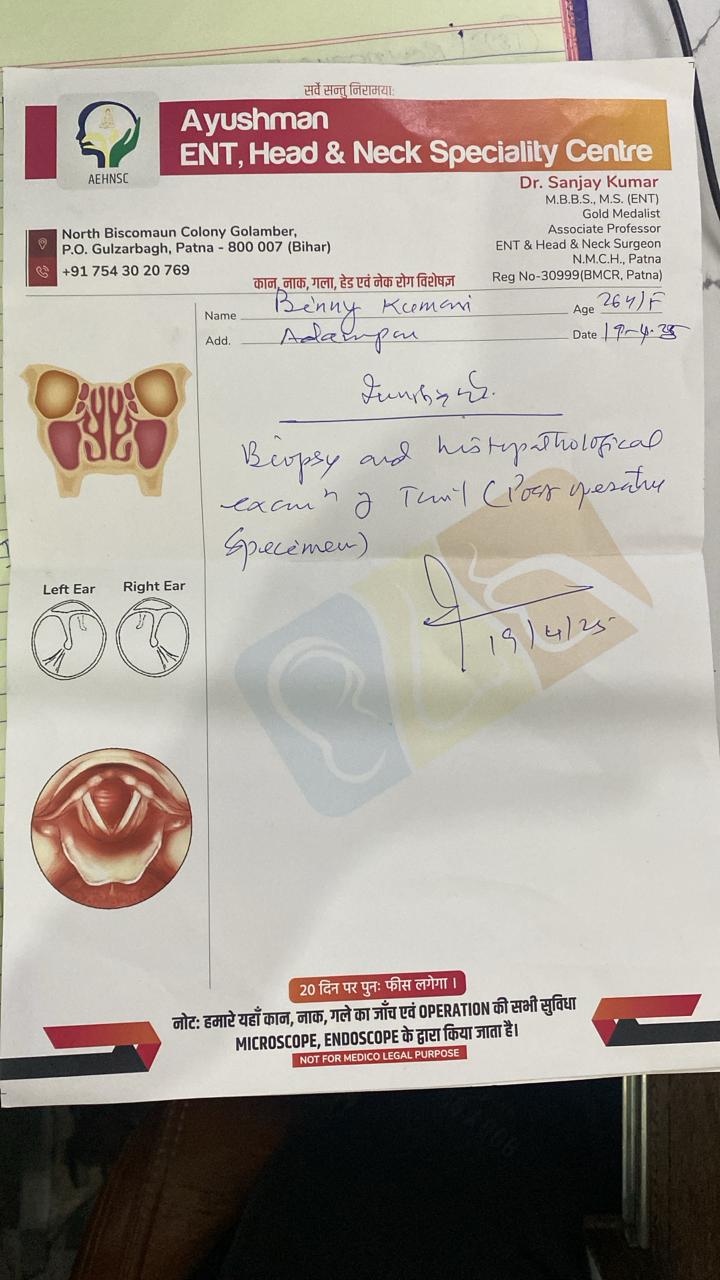 सर्वे सन्तु निरामयाः
Ayushman
ENT, Head & Neck Speciality Centre
AEHNSC
Dr. Sanjay Kumar
M.B.B.S., M.S. (ENT)
Gold Medalist
Associate Professor
ENT & Head & Neck Surgeon
N.M.C.H., Patna
Reg No-30999(BMCR, Patna)
North Biscomaun Colony Golamber,
P.O. Gulzarbagh, Patna - 800 007 (Bihar)
+91 754 30 20 769
कान, नाक, गला, हेड एवं नेक रोग विशेषज्ञ
Name Binny Kumari Age 26y/F
Add. Date 19-4-25
Biopsy and histopathological
exam^n of Tonsil (Post operative
Specimen)
19/4/25
Left Ear Right Ear
20 दिन पर पुनः फीस लगेगा ।
नोट: हमारे यहाँ कान, नाक, गले का जाँच एवं OPERATION की सभी सुविधा
MICROSCOPE, ENDOSCOPE के द्वारा किया जाता है।
NOT FOR MEDICO LEGAL PURPOSE